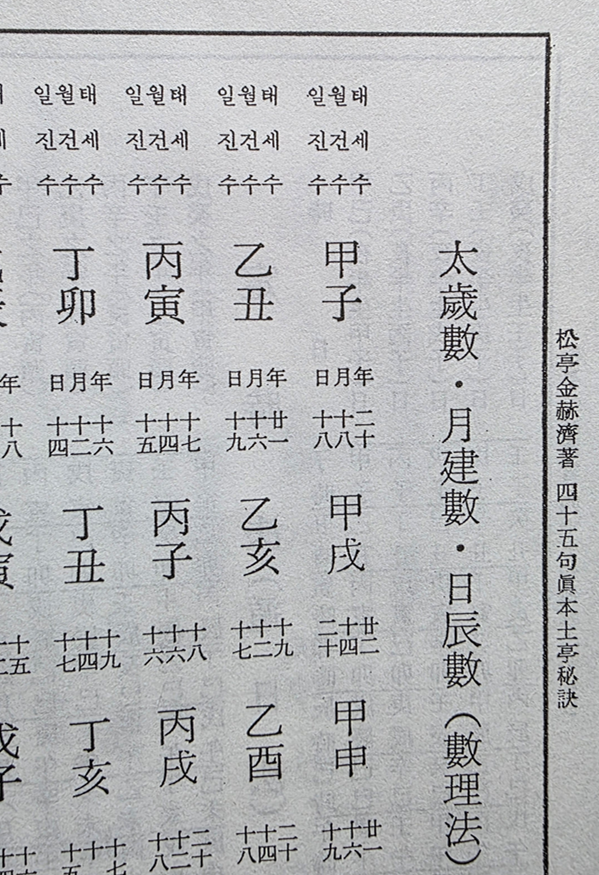 松亭金赫濟著 四十五句眞本土亭秘訣
太歲數・月建數・日辰數(數理法)
태세수
월건수
일진수
甲子
年二十
月十八
日十八
甲戌
廿二
十四
二十
甲申
廿一
十六
十九
태세수
월건수
일진수
乙丑
年廿一
月十六
日十九
乙亥
十九
十二
十七
乙酉
二十
十四
十八
태세수
월건수
일진수
丙寅
年十七
月十四
日十五
丙子
十八
十六
十六
丙戌
二十
十二
十八
태세수
월건수
일진수
丁卯
年十六
月十二
日十四
丁丑
十九
十四
十七
丁亥
年十八
戊寅
十五
戊子